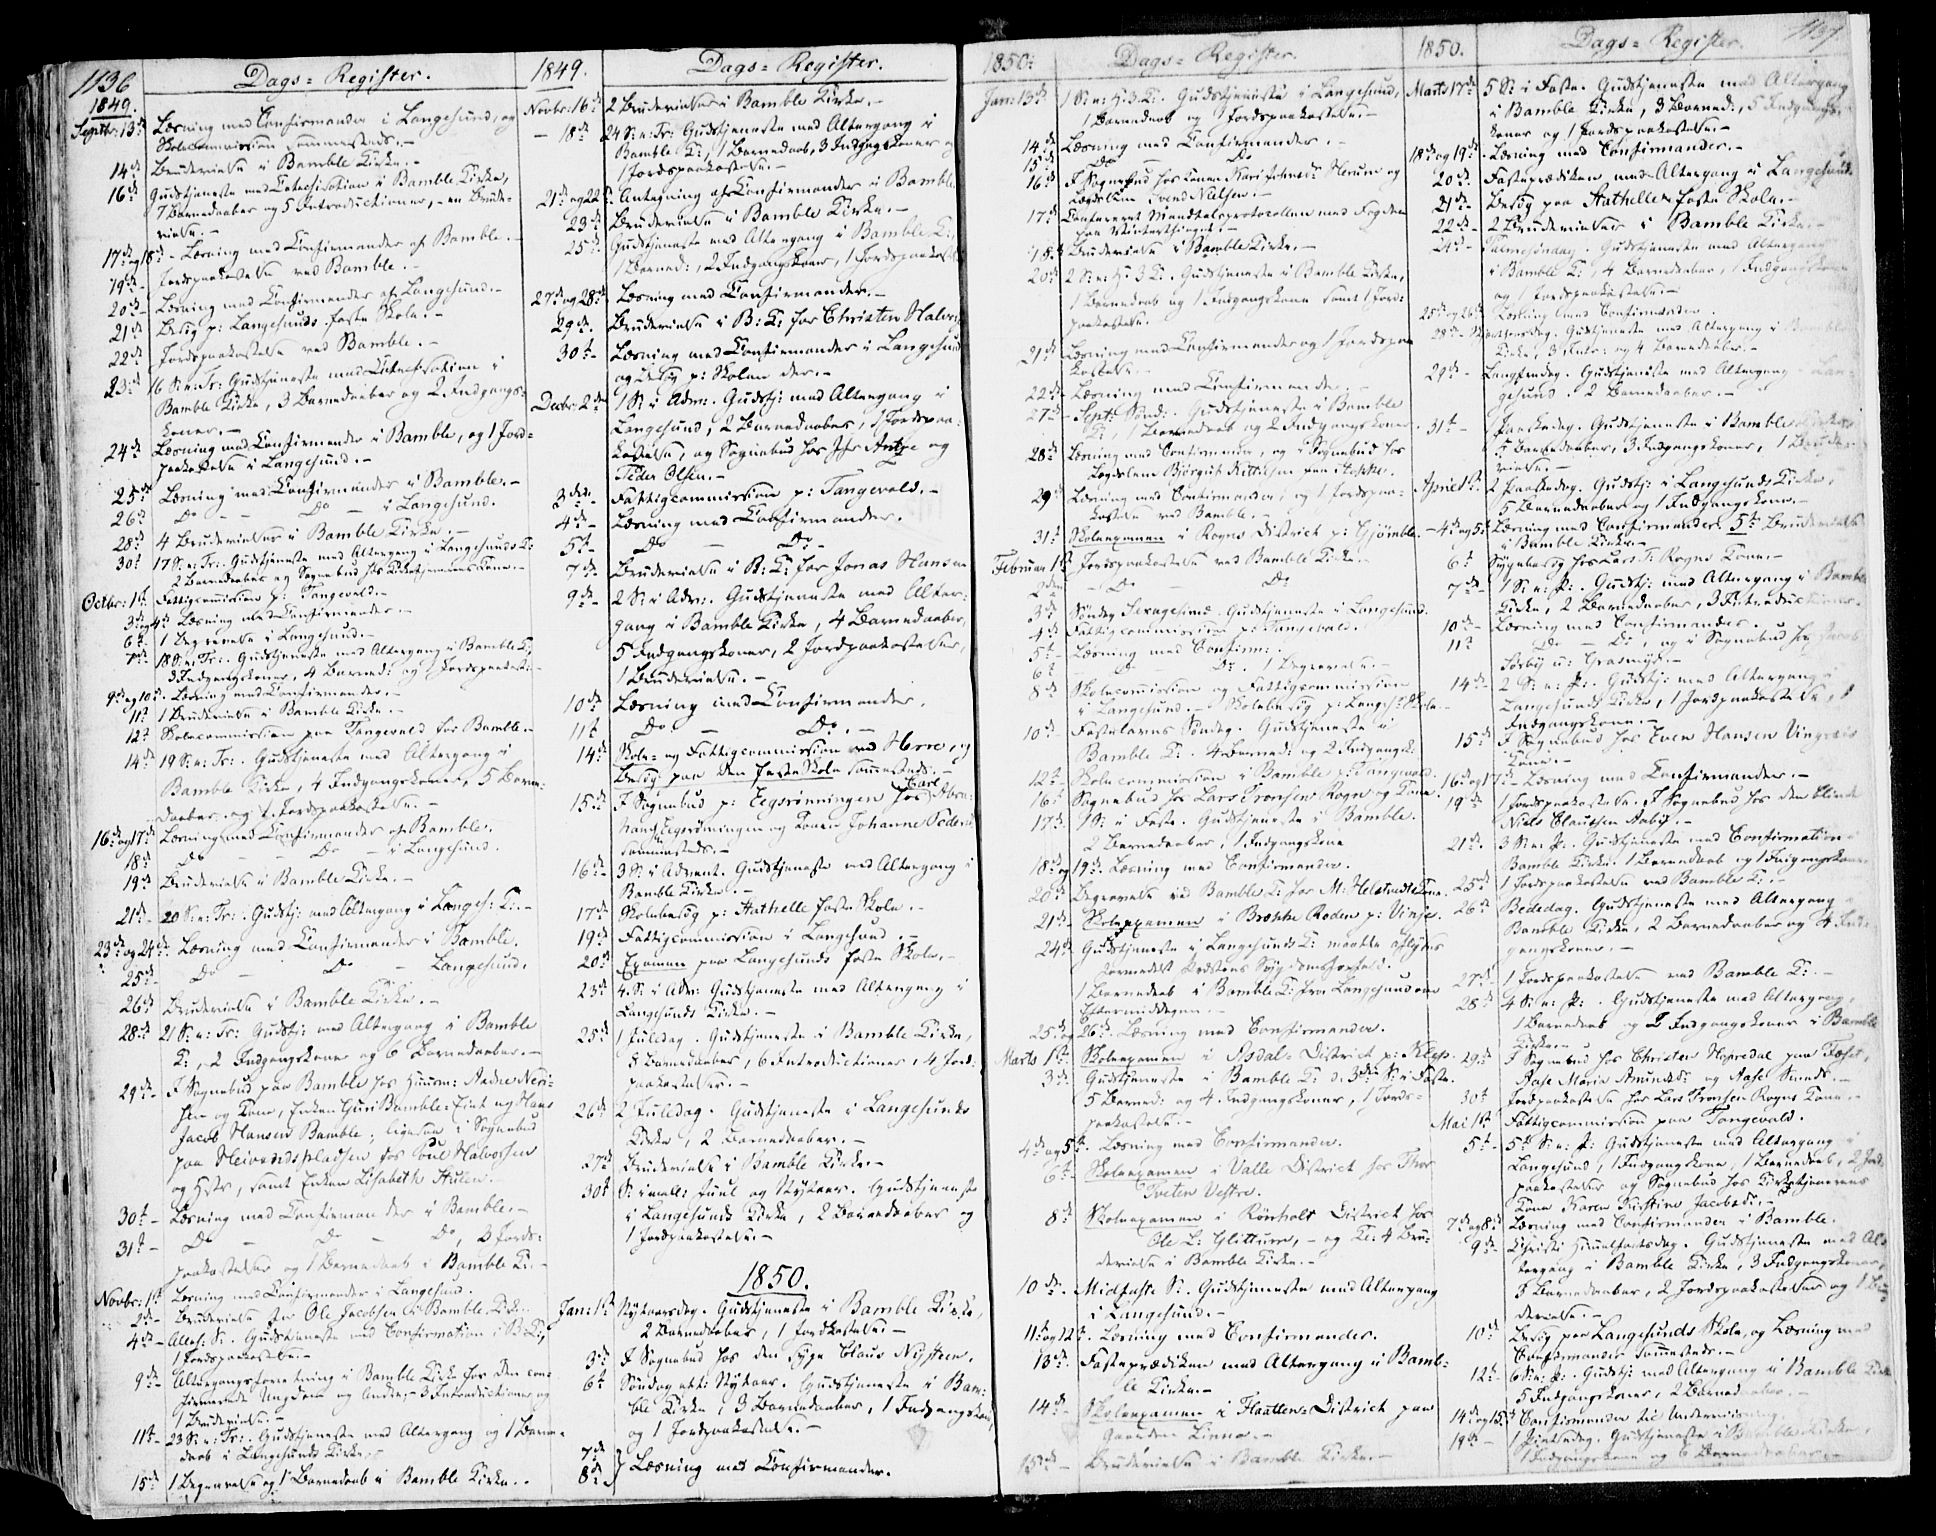 1136
Dags-Register.
1849.
Septbr: 13de Læsning med Confirmander i Langesund, og
Skolecommission sammesteds. –
14de Brudevielse i Bamble Kirke. –
16de Gudstjeneste med Catechisation i Bamble Kirke,
7 Barnedaaber og 5 Introductioner, – en Brude-
vielse. –
17de og 18de – Læsning med Confirmander af Bamble. –
19de – Jordpaakastelse ved Bamble. –
20de – Læsning med Confirmander af Langesund. –
21de Besøg p: Langesunds faste Skole. –
22de Jordpaakastelse ved Bamble. –
23de 16 S: e: Tr: Gudstjeneste med Catechisation i
Bamble Kirke, 3 Barnedaaber og 2 Indgangs-
koner. –
24de Læsning med Confirmander i Bamble, og 1 Jord-
paakastelse i Langesund. –
25de Læsning med Confirmander i Bamble. –
26de Do – – Do – i Langesund.
28de 4 Brudevielser i Bamble Kirke. –
30te 17 S: e: Tr: Gudstjeneste med Altergang i Langesunds K:
2 Barnedaaber og Sognebud hos Kirketjenerens Kone. –
Octbr: 1te Fattigcommission p: Tangevald. –
3de og 4de Læsning med Confirmander. –
6te 1 Begravelse i Langesund. –
7de 18 S: e: Tr: Gudstjeneste med Altergang i Bamble K:
3 Indgangskoner, 4 Barned: og 1 Jordpaakast: –
9de og 10de Læsning med Confirmander. –
11te 1 Brudevielse i Bamble Kirke. –
12te Skolecommission paa Tangevald for Bamble. –
14de 19 S: e: Tr: Gudstjeneste med Altergang i
Bamble Kirke, 4 Indgangskoner, 5 Barne-
daaber og 1 Jordpaakastelse. –
16de og 17de Læsning med Confirmander af Bamble. –
18de Do – – Do – i Langesund.
19de Brudevielse i Bamble Kirke. –
21de – 20 S: e: Tr: Gudstj: med Altergang i Langes: K: –
23de og 24de Læsning med Confirmander i Bamble.
25de – Do – Do – Langesund.
26de Brudevielse i Bamble Kirke. –
28de 21 S: e: Tr: Gudstj: med Altergang i Bamble
K:, 2 Indgangskoner og 6 Barnedaaber. –
29de – I Sognebud paa Bamble hos Huusm: Aadne Neri-
sen og Kone, Enken Guri Bamble-Eiet og Hans
Jacob Hansen Bamble; ligesaa i Sognebud
paa Heivandspladsen hos Poul Halvorsen
og Hstr, samt Enken Lisabeth Hulen.
30te – Læsning med Confirmander i Bamble. –
31te – Do – Do – Do, 2 Jord-
paakastelser og 1 Barnedaab i Bamble K: –
Novbr: 1te Læsning med Confirmander i Langesund.
2de – Brudevielse for Ole Jacobsen i Bamble Kirke.
4de – Alleh: S: Gudstjeneste med Confirmation i B: K:,
1 Jordpaakastelse. –
9de – Altergangsforretning i Bamble Kirke for den con-
firmerede Ungdom og Andre; – 3 Introductioner og
1 Brudevielse. –
11te – 23 S: e: Tr: Gudstjeneste med Altergang og 1 Barne-
daab i Langesunds Kirke. –
15de 1 Begravelse og 1 Barnedaab i Bamble Kirke. –
1849.
Dags-Register.
Novbr: 16de 2 Brudevielser i Bamble Kirke. –
– 18de 24 S: e: Tr: Gudstjeneste med Altergang i
Bamble K:, 1 Barnedaab, 3 Indgangskoner og
1 Jordpaakastelse. –
21de og 22de Antegning af Confirmander i Bamble.
23de Brudevielse i Bamble Kirke. –
25de Gudstjeneste med Altergang i Bamble K:,
1 Barned:, 2 Indgangskoner, 1 Jordpaakastelse
27de og 28de Læsning med Confirmander. –
29de. Brudevielse i B: K: for Christen Halvors
30te – Læsning med Confirmander i Langesund
og Besøg p: Skolen der. –
Decbr: 2den 1 S: i Adv: Gudstj: med Altergang i
Langesund, 2 Barnedaaber, 1 Jordpaa-
kastelse, og Sognebud hos Jfr Antze og
Peder Olsen. –
3die. Fattigcommission p: Tangevald. –
4de – Læsning med Confirmander.
5te – Do – Do –
7de – Brudevielse i B: K: for Jonas Hansen
9de – 2 S: i Adv: Gudstjeneste med Alter-
gang i Bamble Kirke, 4 Barnedaaber,
5 Indgangskoner, 2 Jordpaakastelser,
1 Brudevielse. –
10de Læsning med Confirmander.
11te Do – Do –
14de Skole- og Fattigcommission ved Herre, og
Besøg paa den faste Skole sammesteds. –
15de I Sognebud p: Eegsrønningen hos Carl Abra-
hams Eegsrønningen og Konen Johanne Peders
sammesteds. –
16de – 3 S: i Advent. Gudstjeneste med Altergang i
Bamble Kirke. –
17de Skolebesøg p: Stathelle faste Skole. –
19de Fattigcommission i Langesund. –
20de Examen paa Langesunds faste Skole. –
23de 4. S: i Adv: Gudstjeneste med Altergang i
Langesunds Kirke. –
25de 1 Juledag. Gudstjeneste i Bamble Kirke,
8 Barnedaaber, 6 Introductioner, 4 Jord-
paakastelser. –
26de 2 Juledag. Gudstjeneste i Langesunds
Kirke, 2 Barnedaaber. –
27de Brudevielse i Bamble Kirke. –
30te S: imell: Juul og Nytaar. Gudstjeneste
i Langesunds Kirke, 2 Barnedaaber og
1 Jordpaakastelse. –
1850.
Jan: 1te Nytaarsdag. Gudstjeneste i Bamble Kirke,
2 Barnedaaber, 1 Jordkastelse. –
3de I Sognebud hos den syge Claus Nysteen.
6te Søndag eft: Nytaar. Gudstjeneste i Bam-
ble Kirke, 3 Barnedaaber, 1 Indgangskone
og 1 Jordpaakastelse. –
7de
8de } Læsning med Confirmander.
1850.
Dags-Register.
Jan: 13de 1 S: e: H. 3 K: Gudstjeneste i Langesund,
1 Barnedaab og 1 Jordpaakastelse. –
14de Læsning med Confirmander. –
15de Do – Do
16de I Sognebud hos Konen Kari Hærum og
Lægdslem Svend Nielsen. –
17de Confereret Mandtalsprotocollen med Fogden
paa Vinterthinget. –
18de Brudevielse i Bamble Kirke. –
20de 2 S: e: H. 3 K: Gudstjeneste i Bamble Kirke,
1 Barnedaab og 1 Indgangskone samt 1 Jord-
paakastelse.
21de Læsning med Confirmander og 1 Jordpaa-
kastelse. –
22de – Læsning med Confirmander. –
27de – Sept: Sønd: Gudstjeneste i Bamble
K:, 1 Barnedaab og 2 Indgangskoner.
28de Læsning med Confirmander, og i Sognebud hos
Lægdslem Bjørgut Kittilsen paa Stokke.
29de Læsning med Confirmander, og 1 Jordpaa-
kastelse ved Bamble. –
31te Skoleexamen i Rogns District p: Gjømle.
Februar 1te Jordpaakastelse ved Bamble Kirke. –
2den – Do – Do
3de Søndag Sexagesima. Gudstjeneste i Langesund.
4de Fattigcommission p: Tangevald.
5te – Læsning med Confirm: –
6te – Do. 1 Begravelse. –
8de Skolecommission og Fattigcommission
i Langesund. – Skolebesøg p: Langes: Skole.
10de – Fastelavns Søndag. Gudstjeneste i
Bamble K: 4 Barned: og 2 Indgangsk:
12te – Skolecommission i Bamble p: Tangevald.
16te Sognebud hos Lars Tronsen Rogn og Kone.
17de 1 S: i Faste. Gudstjeneste i Bamble.
2 Barnedaaber, 1 Indgangskone
18de og 19de. Læsning med Confirmander.
20de Begravelse ved Bamble K: for M: Kone.
21de – Skoleexamen i Brekke Roden p: Vinje.
24de Gudstjeneste i Langesunds K: maatte aflyses
formedelst Præstens Sygdomsforfald.
1 Barnedaab i Bamble K: fra Langesund om
Eftermiddagen. –
25de og 26de. Læsning med Confirmander.
Marts 1te Skoleexamen i Asdal-District p: Klep.
3de. Gudstjeneste i Bamble K: d. 3die S: i Faste.
5 Barned: og 4 Indgangskoner, 1 Jord-
paakastelse. –
4de og 5te. Læsning med Confirmander.
6te Skoleexamen i Valle District hos Thor
Tveten Vestre.
8de Skoleexamen i Rønholt District hos
Ole L: Glittum, – og Kl: 4 Bru-
devielse i Bamble Kirke. –
10de. Midfaste S: Gudstjeneste med Altergang
i Langesund. –
11te og 12te. Læsning med Confirmander.
13de. Fasteprædiken med Altergang i Bamb-
le Kirke. –
14de – Skoleexamen i Flaatten-District paa
Gaarden Linna. –
15de – Brudevielse i Bamble Kirke. –
1850.
Dags-Register.
1137
Marts 17de 5 S: i Faste. Gudstjeneste med Altergang
i Bamble Kirke, 3 Barned:, 5 Indgangs-
koner og 1 Jordpaakastelse. –
18de og 19de. Læsning med Confirmander. –
20de. Fasteprædiken med Altergang i Langesund.
21de – Besøg paa Stathelle faste Skole. –
22de – 2 Brudevielser i Bamble Kirke. –
24de – Palmesøndag. Gudstjeneste med Altergang
i Bamble K:, 4 Barnedaaber, 1 Indgangskone
og 1 Jordpaakastelse. –
25de og 26de Læsning med Confirmander.
28de – Skjærthorsdag. Gudstjeneste med Altergang i Bamble
Kirke, 3 Intr: og 4 Barnedaaber. –
29de – Langfredag. Gudstjeneste med Altergang i Lan-
gesund. 2 Barnedaaber. –
31te – 1 Paaskedag. Gudstjeneste i Bamble Kirke
5 Barnedaaber, 3 Indgangskoner, 1 Brude-
vielse. –
April 1te. 2 Paaskedag. Gudstj: i Langesunds Kirke,
5 Barnedaaber og 1 Indgangskone. –
– 4de og 5te Læsning med Confirmander. 5te Brudevielse
i Bamble Kirke. –
6te Sygebesøg hos Lars T: Rogns Kone. –
7de – 1 S: e: P: Gudstj: med Altergang i Bamble
Kirke, 2 Barnedaaber, 3 Introductioner.
10de – Læsning med Confirmander.
11te Do – Do, og i Sognebud hos Jacob
Sørby u: Grasmyr. –
14de – 2 S: e: P: Gudstj: med Altergang i
Langesunds Kirke, 1 Jordpaakastelse, 1
Indgangskone. –
15de I Sognebud hos Even Hansen Vingereis
Kone. –
16de og 17de – Læsning med Confirmander. –
19de 1 Jordpaakastelse. I Sognebud hos den blinde
Niels Clautsen Aaby. –
21de. 3 S: e: P: Gudstjeneste med Confirmation i
Bamble Kirke. 1 Barnedaab og 1 Indgangskone.
25de 1 Jordpaakastelse ved Bamble K: –
26de Bededag. Gudstjeneste med Altergang i
Bamble Kirke, 2 Barnedaaber og 4 Ind-
gangskoner. –
27de – 1 Jordpaakastelse ved Bamble K: –
28de 4 S: e: P: Gudstjeneste med Altergang,
1 Barnedaab og 2 Indgangskoner i Bamble
Kirke. –
29de I Sognebud hos Christen paa Fæset,
Aase Marie Amundsd: og Aase Smeds. –
30te Jordpaakastelse hos Lars Tronsen Rogns Kone. –
Mai 1te Fattigcommission paa Tangevald.
5te – 5te S: e: P: Gudstjeneste med Altergang i
Langesund, 1 Indgangskone, 1 Barnedaab, 2 Jord-
paakastelser og Sognebud hos Kirketjenerens
Kone Karen Kirstine Jacobsd: –
7de og 8de Læsning med Confirmander i Bamble.
9de – Christi Himmelfartsdag. Gudstjeneste med Al-
tergang i Bamble Kirke, 3 Indgangskoner,
8 Barnedaaber, 2 Jordpaakastelser og 1 Bru-
devielse. –
10de Besøg paa Langesunds Skole, og Læsning med
Confirmander sammesteds. –
12te – 6 S: e: P: Gudstj: med Altergang i Bamble Kirke
5 Indgangskoner, 2 Barnedaaber. –
14de og 15de Confirmander til Underviisning.
19de – 1 Pintsedag. Gudstjeneste i Bamble Kirke,
1 Indgangskone og 6 Barnedaaber. –